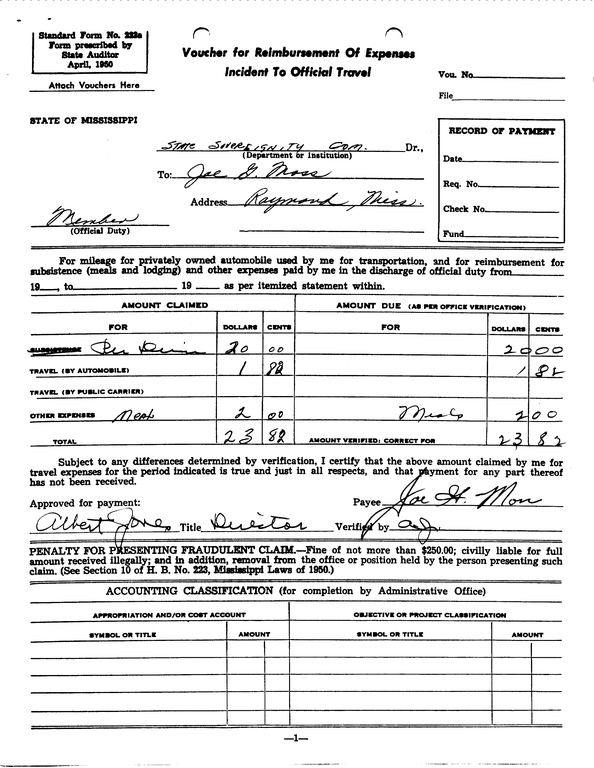 Standard Form No. 222a
Form prescribed by
State Auditor
April, 1950
Attach Vouchers Here
Voucher for Reimbursement Of Expenses
Incident To Official Travel
Vou. No.
File
STATE OF MISSISSIPPI
STATE SOVEREIGNITY COM. Dr.,
(Department or Institution)
To: Joe G. Moss
Address Raymond, Miss.
Member
(Official Duty)
RECORD OF PAYMENT
Date
Req. No.
Check No.
Fund
For mileage for privately owned automobile used by me for transportation, and for reimbursement for
subsistence (meals and lodging) and other expenses paid by me in the discharge of official duty from
19 , to 19 as per itemized statement within.
AMOUNT CLAIMED AMOUNT DUE (AS PER OFFICE VERIFICATION)
FOR DOLLARS CENTS FOR DOLLARS CENTS
SUBSISTENCE Per Deim 20 00 20 00
TRAVEL (BY AUTOMOBILE) 1 82 1 82
TRAVEL (BY PUBLIC CARRIER)
OTHER EXPENSES Meal 2 00 Meals 2 00
TOTAL 23 82 AMOUNT VERIFIED: CORRECT FOR 23 82
Subject to any differences determined by verification, I certify that the above amount claimed by me for
travel expenses for the period indicated is true and just in all respects, and that payment for any part thereof
has not been received.
Approved for payment: Payee Joe
Albert Jones Title Director Verified by aj
PENALTY FOR PRESENTING FRAUDULENT CLAIM.—Fine of not more than $250.00; civilly liable for full
amount received illegally; and in addition, removal from the office or position held by the person presenting such
claim. (See Section 10 of H. B. No. 223, Mississippi Laws of 1950.)
ACCOUNTING CLASSIFICATION (for completion by Administrative Office)
APPROPRIATION AND/OR COST ACCOUNT OBJECTIVE OR PROJECT CLASSIFICATION
SYMBOL OR TITLE AMOUNT SYMBOL OR TITLE AMOUNT
—1—